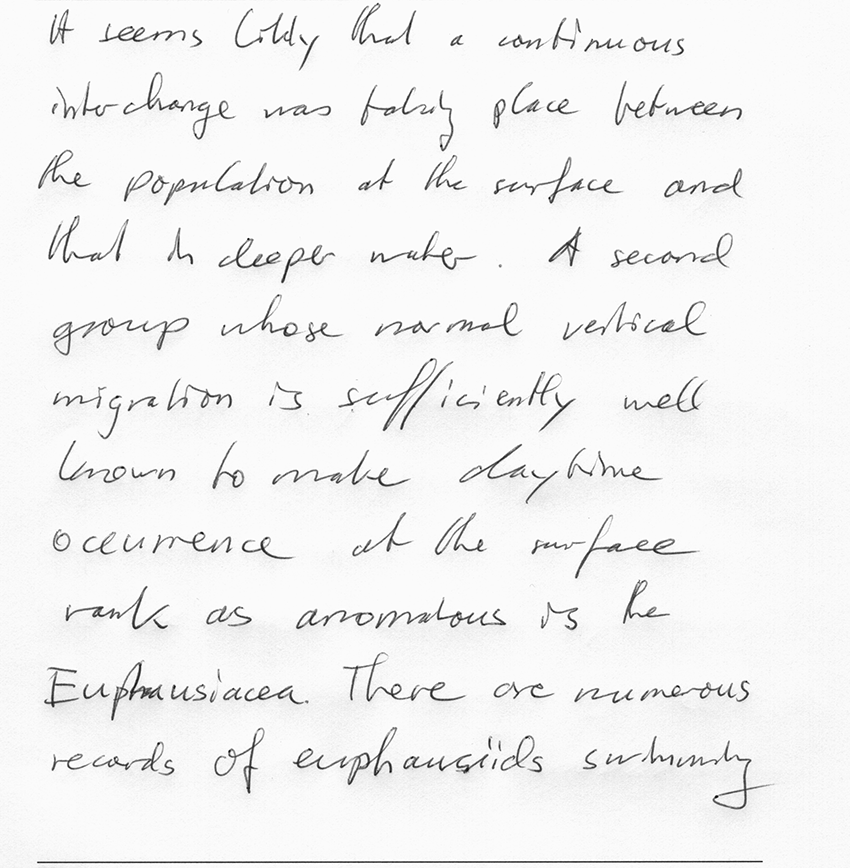 It seems likly that a continuous
interchange was taking place between
the population at the surface and
that in deeper water. A second
group whose normal vertical
migration is sufficiently well
known to make daytime
occurrence at the surface
rank as anomalous is the
Euphausiacea. There are numerous
records of euphausiids swimming